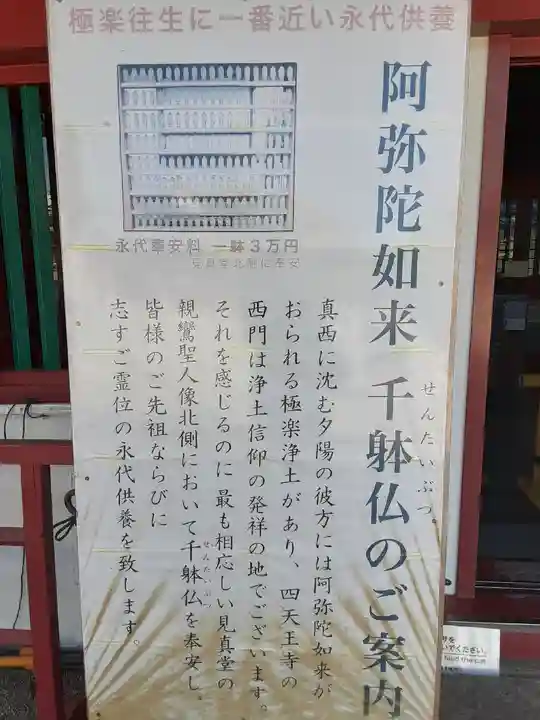 極楽往生に一番近い永代供養
阿弥陀如来 千躰仏のご案内
せんたいぶつ
永代奉安料 一躰3万円
見真堂北側に奉安
真西に沈む夕陽の彼方には阿弥陀如来が
おられる極楽浄土があり、四天王寺の
西門は浄土信仰の発祥の地でございます。
それを感じるのに最も相応しい見真堂の
親鸞聖人像北側において千躰仏を奉安し、
せんたいぶつ
皆様のご先祖ならびに
志すご霊位の永代供養を致します。
いでください。